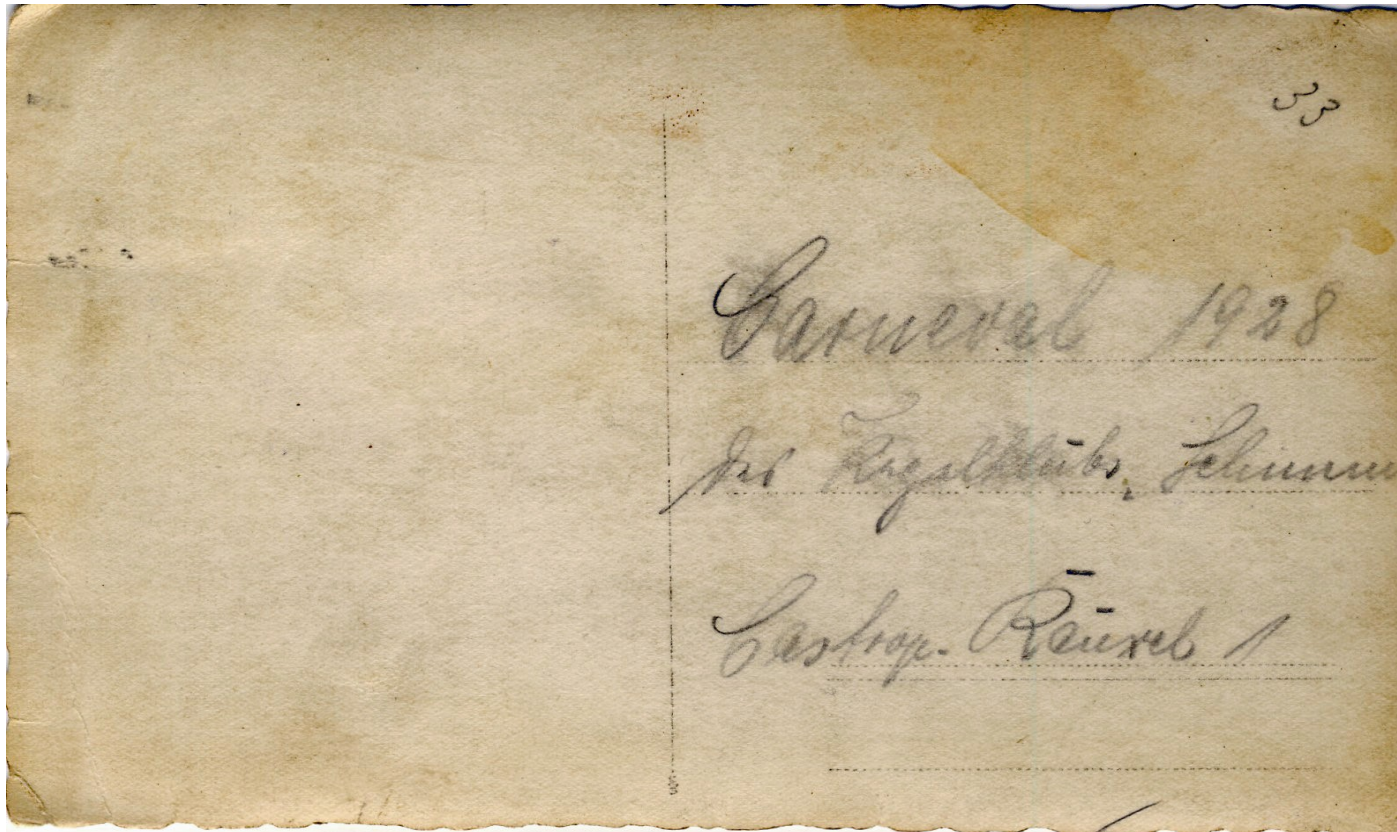 33
Carneval 1928
des Kegelklubs,
Castrop-Rauxel 1